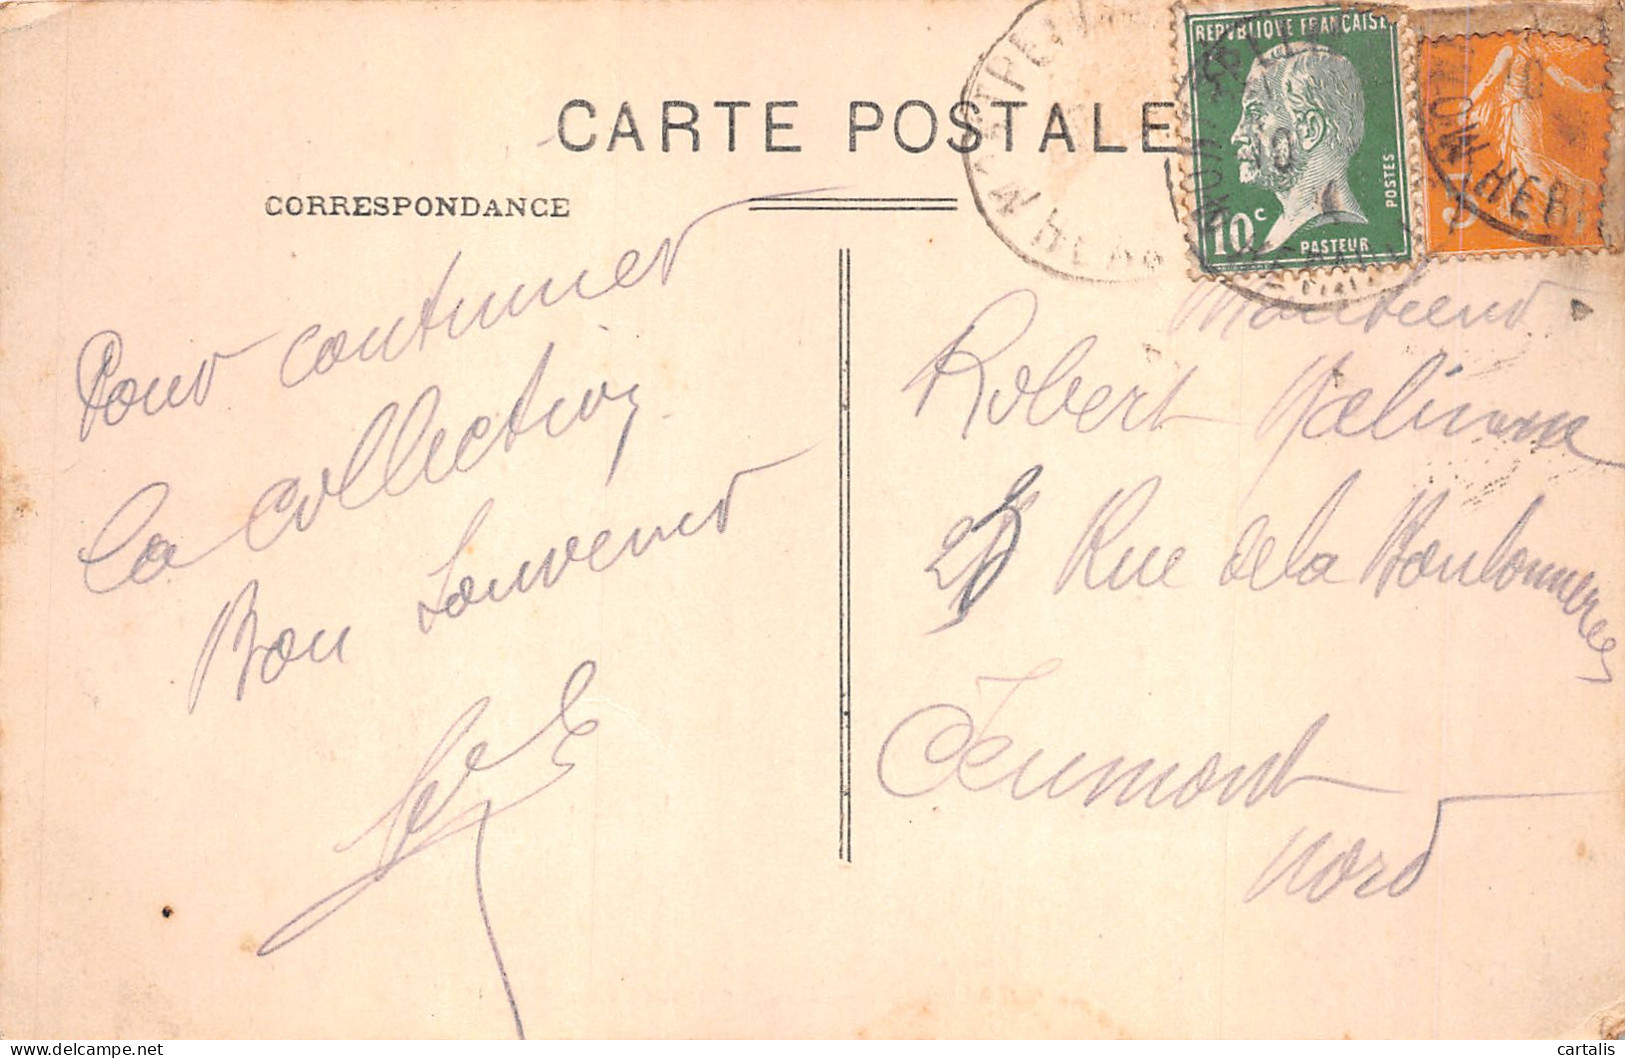 CARTE POSTALE
CORRESPONDANCE
REPVBLIQVE FRANÇAISE
10c
POSTES
PASTEUR
Pour continuer
la collection
Bon Souvenir
Monsieur
Robert
25 Rue de la Boulonnerie
Jeumont
Nord
cartalis